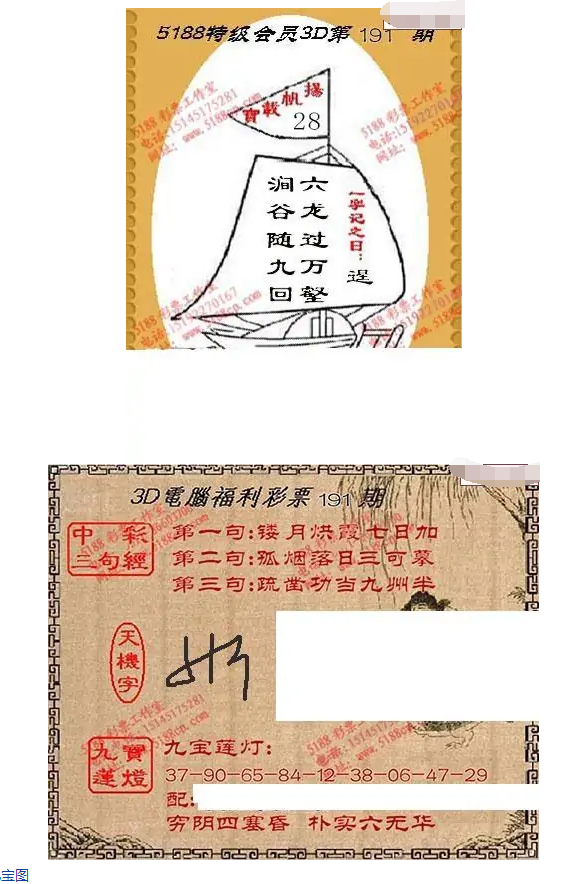 5188特级会员3D第191期
揚帆載寶
28
六龙过万壑
涧谷随九回
一字记之曰:
逞
5188 彩票工作室
电话:15145175281
网址: www.5188cp.com
5188 彩票工作室
电话:15192270167
网址: www.5188cp.com
3D電腦福利彩票191期
中彩三句經
第一句:镂月烘霞七日加
第二句:孤烟落日三可摹
第三句:疏凿功当九州半
天機字
九寶蓮燈
九宝莲灯:
37-90-65-84-12-38-06-47-29
配:
穷阴四塞昏 朴实六无华
宝图